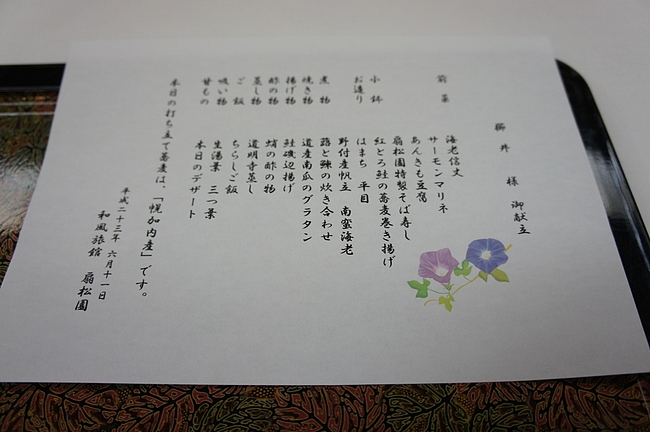 櫛井 様 御献立
前菜 海老信丈
サーモンマリネ
あんきも豆腐
扇松園特製そば寿し
紅とろ鮭の蕎麦巻き揚げ
小鉢 はまち 平目
お造り 野付産帆立 南蛮海老
煮物 蕗と鰊の炊き合わせ
焼き物 道産南瓜のグラタン
揚げ物 鮭磯辺揚げ
酢の物 蛸の酢の物
蒸し物 道明寺蒸し
ご飯 ちらしご飯
吸い物 生湯葉 三つ葉
甘もの 本日のデザート
本日の打ち立て蕎麦は、「幌加内産」です。
平成二十三年 六月十一日
和風旅館 扇松園